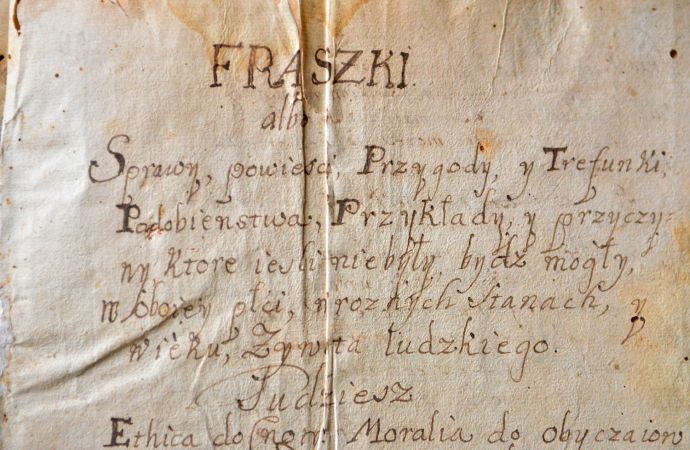 FRASZKI
albo
Sprawy, powiesci, Przygody, y Trefunki,
Podobienstwa, Przykłady, y przyczy-
ny ktore iesli niebyły, bydz mogły,
w oboiey płci, y roznych Stanach, y
wieku, Zywota ludzkiego.
Tudziesz
Ethica Moralia do obyczaiow